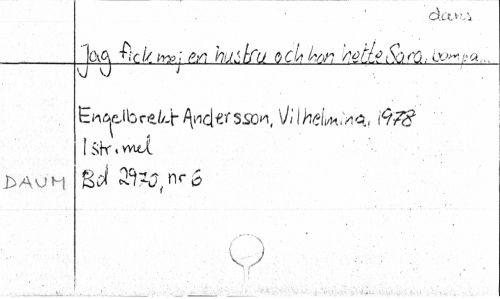 dans
Jag fick mej en hustru och hon hette Sara, bompa...
Engelbrekt Andersson, Vilhelmina, 1978
1 str. mel
DAUM Bd 2970, nr 6